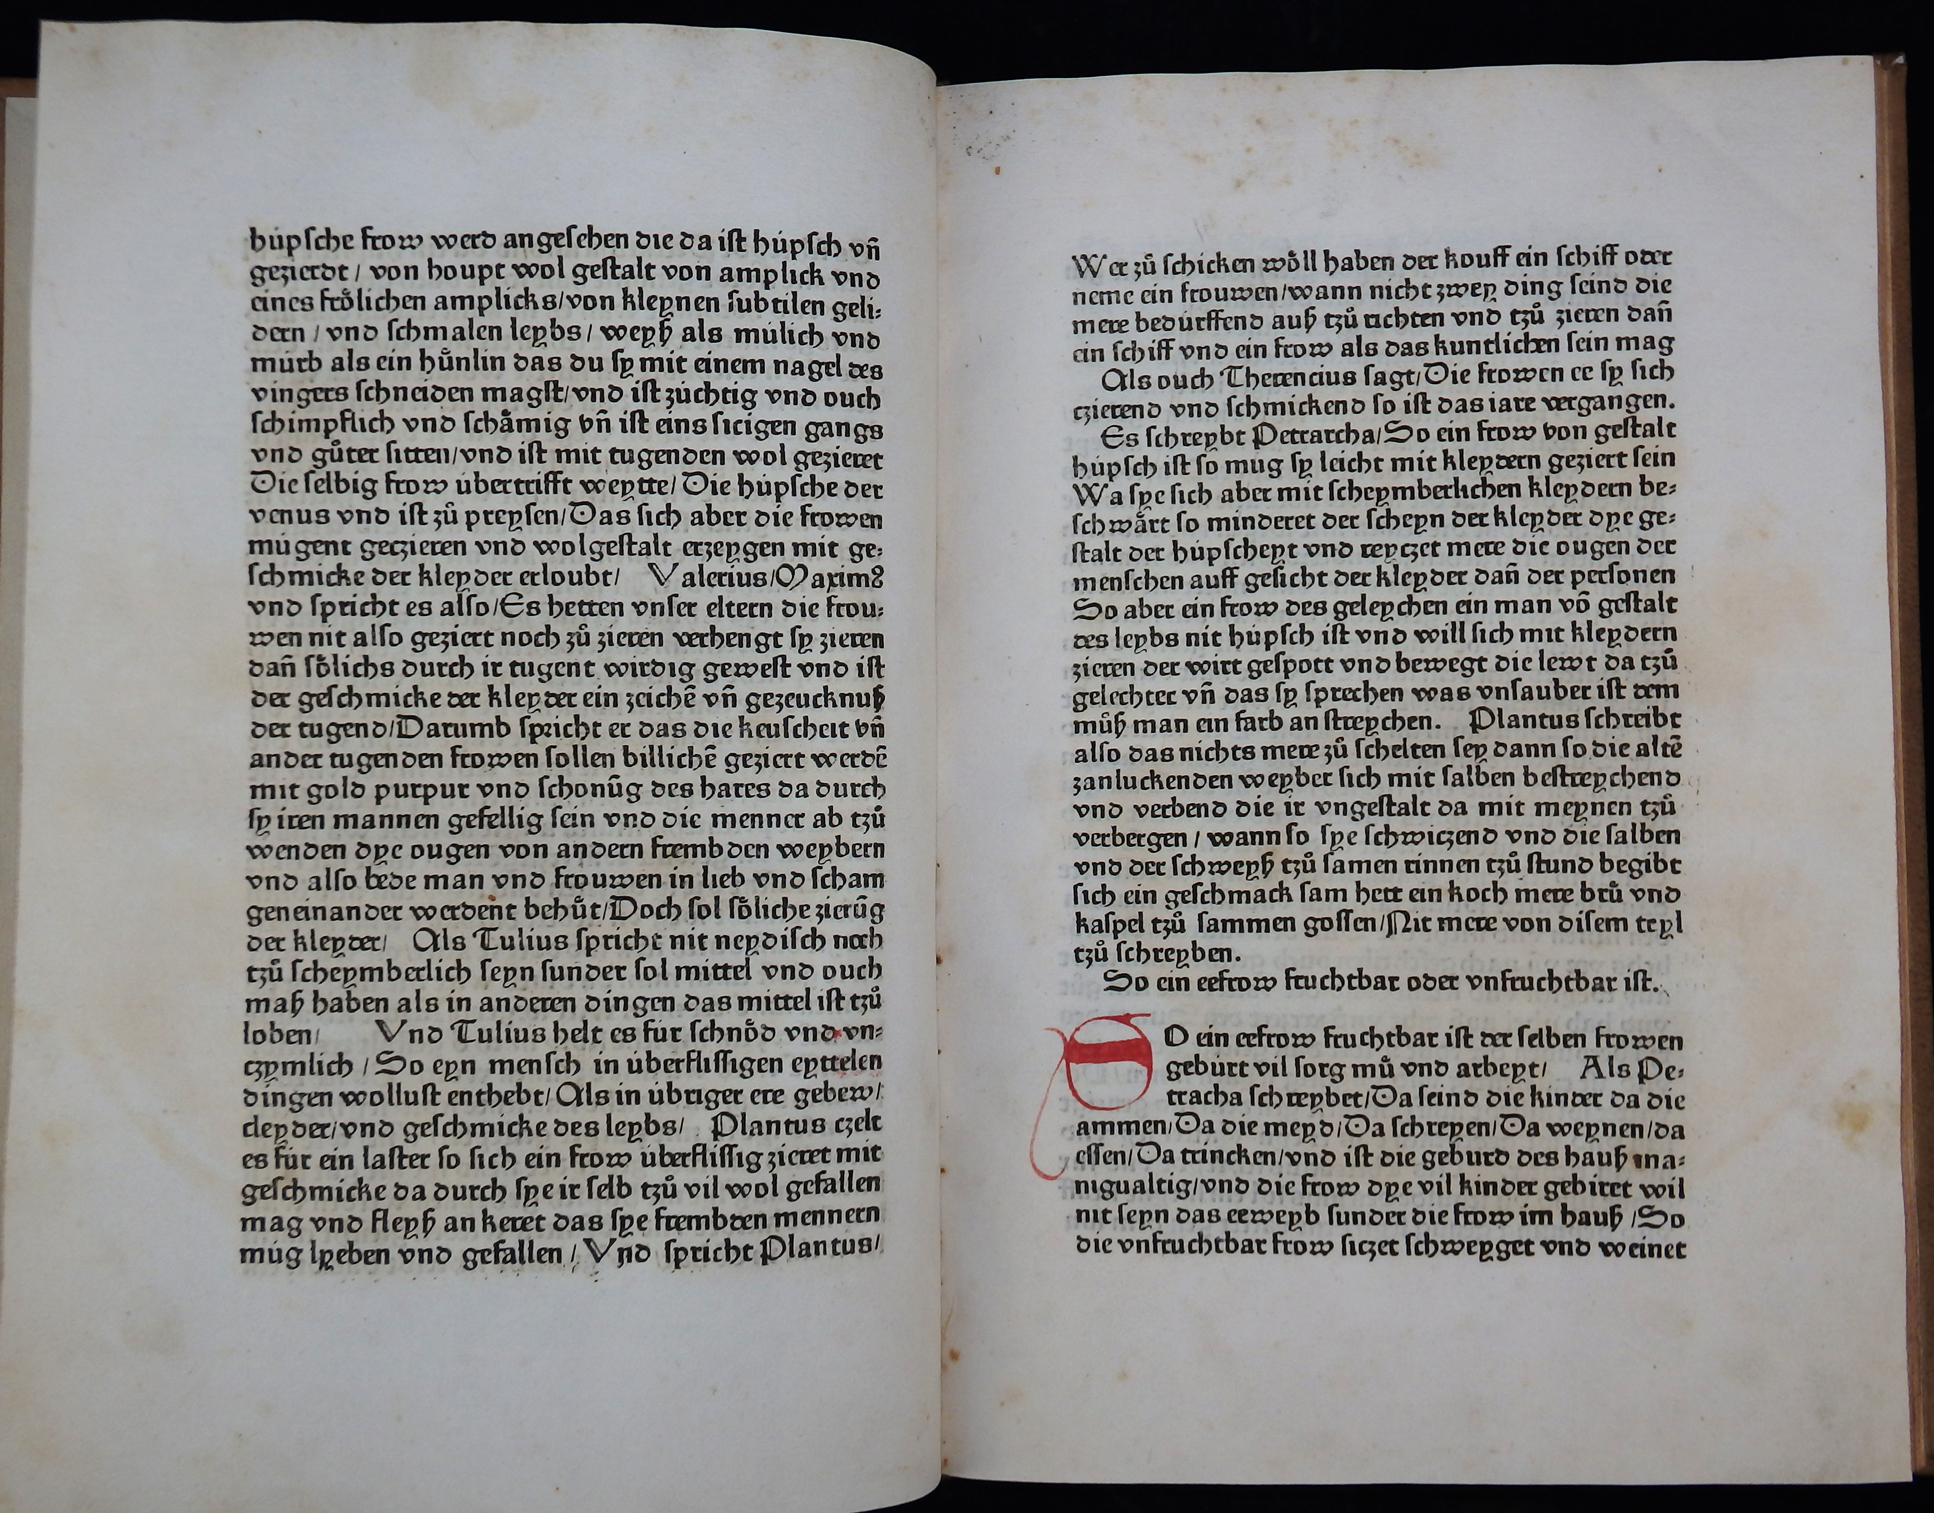 húpſche frow werd angeſehen die da iſt húpſch vñ
gezierdt / von houpt wol geſtalt von amplick vnd
eines froͤlichen amplicks/von kleynen ſubtilen geli⸗
dern / vnd ſchmalen leybs / weyß als múlich vnd
múrb als ein huͤnlin das du ſy mit einem nagel des
vingers ſchneiden magſt/vnd iſt zúchtig vnd ouch
ſchimpflich vnd ſchaͤmig vñ iſt eins ſicigen gangs
vnd guͦter ſitten/vnd iſt mit tugenden wol gezieret
Die ſelbig frow úbertrifft weytte/ Die húpſche der
venus vnd iſt zuͦ preyſen/Das ſich aber die frowen
múgent geczieren vnd wolgeſtalt erzeygen mit ge⸗
ſchmicke der kleyder erloubt/ Valerius/Maximꝰ
vnd ſpricht es alſo/Es hetten vnſer eltern die frou⸗
wen nit alſo geziert noch zuͦ zieren verhengt ſy zieren
dañ ſoͤlichs durch ir tugent wirdig geweſt vnd iſt
der geſchmicke der kleyder ein zeichē vñ gezeucknuß
der tugend/Darumb ſpricht er das die keuſcheit vñ
ander tugenden frowen ſollen billichē geziert werdē
mit gold purpur vnd ſchonūg des hares da durch
ſy iren mannen gefellig ſein vnd die menner ab tzuͦ
wenden dye ougen von andern frembden weybern
vnd alſo bede man vnd frouwen in lieb vnd ſcham
geneinander werdent behuͤt/Doch ſol ſoͤliche zierūg
der kleyder/ Als Tulius ſpricht nit neydiſch noch
tzuͦ ſcheymberlich ſeyn ſunder ſol mittel vnd ouch
maß haben als in anderen dingen das mittel iſt tzuͦ
loben/ Vnd Tulius helt es fúr ſchnoͤd vnd vn⸗
czymlich / So eyn menſch in úberfliſſigen eyttelen
dingen wolluſt enthebt/ Als in úbriger ere gebew/
cleyder/vnd geſchmicke des leybs/ Plantus czelt
es fúr ein laſter ſo ſich ein frow úberfliſſig zieret mit
geſchmicke da durch ſye ir ſelb tzuͦ vil wol gefallen
mag vnd fleyß an keret das ſye frembden mennern
múg lyeben vnd gefallen / Vnd ſpricht Plantus/
Wer zuͦ ſchicken woͤll haben der kouff ein ſchiff oder
neme ein frouwen/wann nicht zwey ding ſeind die
mere bedúrffend auß tzuͦ richten vnd tzuͦ zieren dañ
ein ſchiff vnd ein frow als das kuntlichen ſein mag
Als ouch Therencius ſagt/Die frowen ee ſy ſich
czierend vnd ſchmickend ſo iſt das iare vergangen.
Es ſchreybt Petrarcha/So ein frow von geſtalt
húpſch iſt ſo mug ſy leicht mit kleydern geziert ſein
Wa ſye ſich aber mit ſcheymberlichen kleydern be⸗
ſchwaͤrt ſo minderet der ſcheyn der kleyder dye ge⸗
ſtalt der húpſcheyt vnd reyczet mere die ougen der
menſchen auff geſicht der kleyder dañ der perſonen
So aber ein frow des geleychen ein man vō geſtalt
des leybs nit húpſch iſt vnd will ſich mit kleydern
zieren der wirt geſpott vnd bewegt die lewt da tzuͦ
gelechter vñ das ſy ſprechen was vnſauber iſt dem
muͦß man ein farb an ſtreychen. Plantus ſchreibt
alſo das nichts mere zuͦ ſchelten ſey dann ſo die altē
zanluckenden weyber ſich mit ſalben beſtreychend
vnd verbend die ir vngeſtalt da mit meynen tzuͦ
verbergen / wann ſo ſye ſchwiczend vnd die ſalben
vnd der ſchweyß tzuͦ ſamen rinnen tzuͦ ſtund begibt
ſich ein geſchmack ſam hett ein koch mere bruͤ vnd
kaſpel tzuͦ ſammen goſſen/Nit mere von diſem teyl
tzuͦ ſchreyben.
So ein eefrow fruchtbar oder vnfruchtbar iſt.
SO ein eefrow fruchtbar iſt der ſelben frowen
geburt vil ſorg muͤ vnd arbeyt/ Als Pe⸗
tracha ſchreybet/Da ſeind die kinder da die
ammen/Da die meyd/Da ſchreyen/Da weynen/da
eſſen/Da trincken/vnd iſt die geburd des hauß ma⸗
nigualtig/vnd die frow dye vil kinder gebiret wil
nit ſeyn das eeweyb ſunder die frow im hauß /So
die vnfruchtbar frow ſiczet ſchweyget vnd weinet